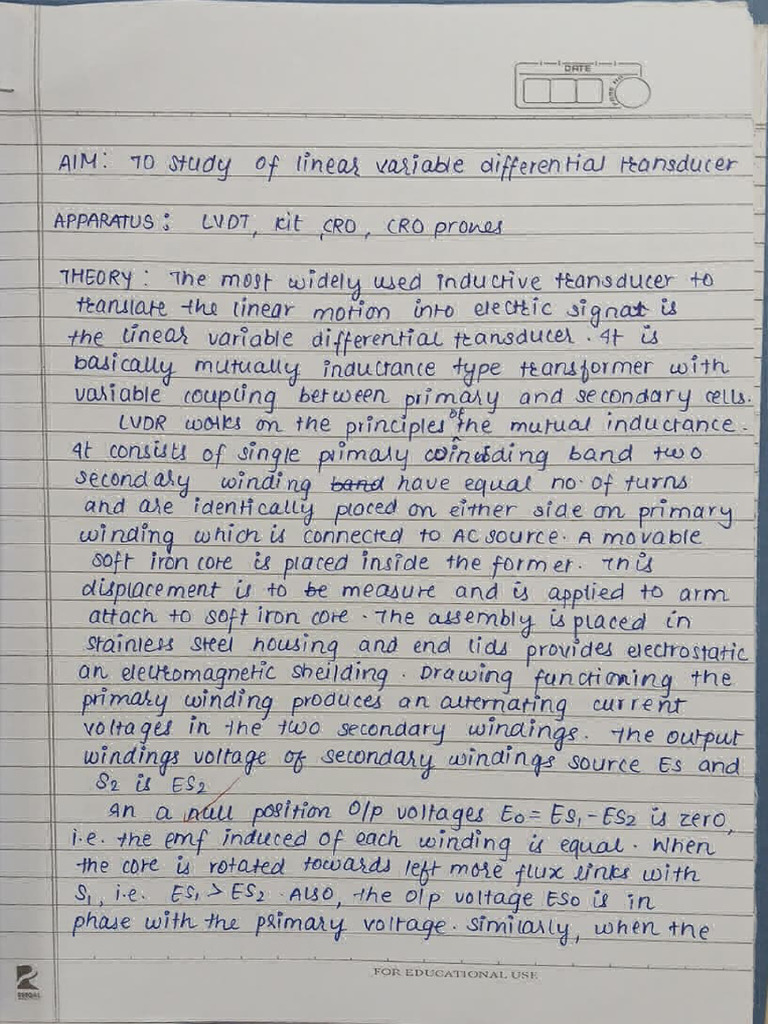 DATE
AIM: To study of linear variable differential transducer
APPARATUS: LVDT, Kit, CRO, CRO prones
THEORY: The most widely used inductive transducer to
translate the linear motion into electric signal is
the linear variable differential transducer. It is
basically mutually inductance type transformer with
variable coupling between primary and secondary cells.
LVDR works on the principles of the mutual inductance.
It consists of single primary winding band two
secondary winding band have equal no. of turns
and are identically placed on either side on primary
winding which is connected to AC source. A movable
soft iron core is placed inside the former. This
displacement is to be measure and is applied to arm
attach to soft iron core. The assembly is placed in
stainless steel housing and end lids provides electrostatic
an electromagnetic sheilding. Drawing functioning the
primary winding produces an alternating current
voltages in the two secondary windings. The output
windings voltage of secondary windings source Es and
S2 is ES2
An a null position O/p voltages Eo = ES1 - ES2 is zero,
i.e. the emf induced of each winding is equal. When
the core is rotated towards left more flux links with
S1, i.e. ES1 > ES2. Also, the o/p voltage ESo is in
phase with the primary voltage. Similarly, when the
FOR EDUCATIONAL USE